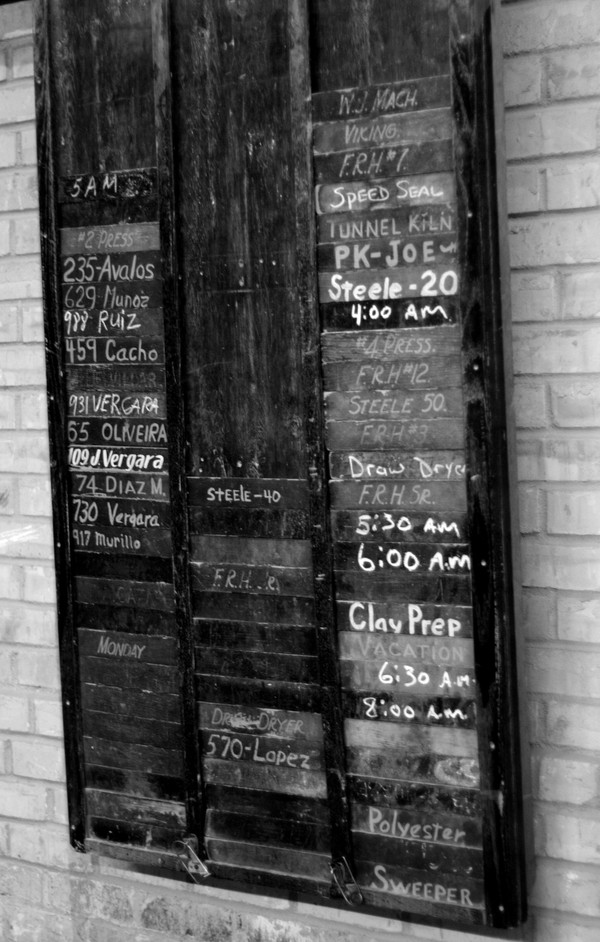 5 AM
#2 PRESS
235-Avalos
629 Munoz
988 RUIZ
459 Cacho
931 VERGARA
65 OLIVEIRA
109 J. Vergara
74 DIAZ M.
730 Vergara
917 Murillo
MONDAY
STEELE-40
F.R.H.
DRAW DRYER
570-Lopez
W.J. MACH.
VIKING
F.R.H.#7
SPEED SEAL
TUNNEL KILN
PK-JOE
Steele-20
4:00 AM
#4 PRESS.
F.R.H#12.
STEELE 50.
F.R.H#3
Draw Drye
F.R.H SR.
5:30 AM
6:00 A.M
Clay Prep
VACATION
6:30 A.M.
8:00 A.M.
Polyester
SWEEPER